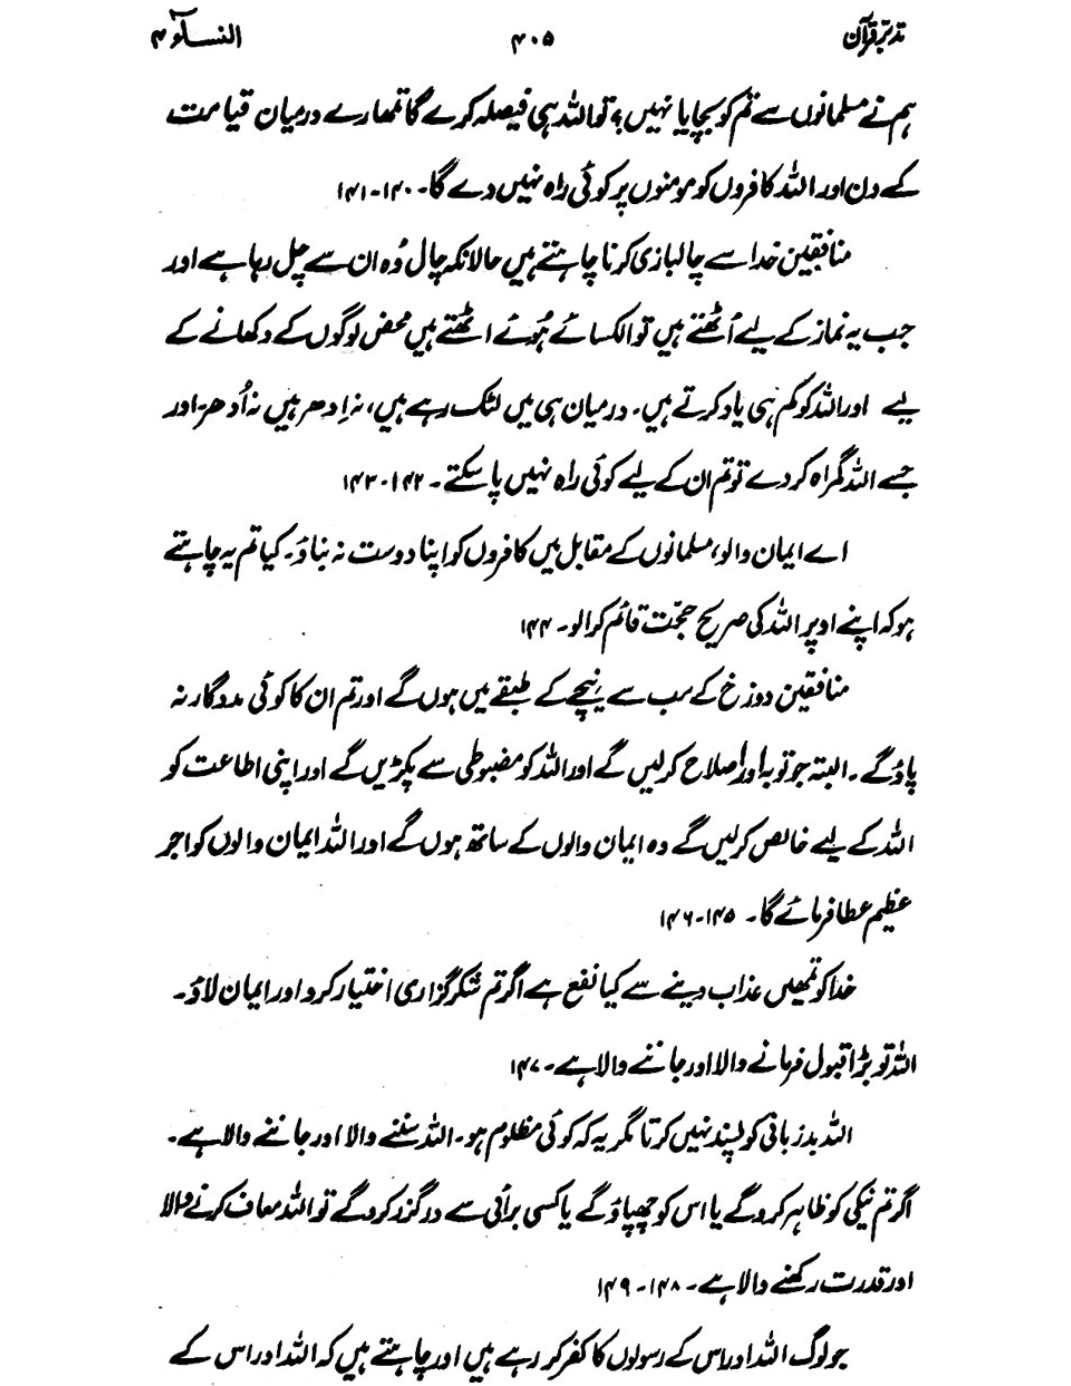 تدبر قرآن ۴۰۵ النسآء ۴
ہم نے مسلمانوں سے تم کو بچایا نہیں؟ تو اللہ ہی فیصلہ کرے گا تمھارے درمیان قیامت
کے دن اور اللہ کافروں کو مومنوں پر کوئی راہ نہیں دے گا۔ ۱۴۰-۱۴۱
منافقین خدا سے چالبازی کرنا چاہتے ہیں حالانکہ چال وُہ ان سے چل رہا ہے اور
جب یہ نماز کے لیے اُٹھتے ہیں تو الکسائے ہُوئے اٹھتے ہیں محض لوگوں کے دکھانے کے
لیے اور اللہ کو کم ہی یاد کرتے ہیں۔ درمیان ہی میں لٹک رہے ہیں، نہ اِدھر ہیں نہ اُدھر اور
جسے اللہ گمراہ کر دے تو تم ان کے لیے کوئی راہ نہیں پا سکتے۔ ۱۴۲-۱۴۳
اے ایمان والو، مسلمانوں کے مقابل میں کافروں کو اپنا دوست نہ بناؤ۔ کیا تم یہ چاہتے
ہو کہ اپنے اوپر اللہ کی صریح حجّت قائم کرا لو۔ ۱۴۴
منافقین دوزخ کے سب سے نیچے کے طبقے میں ہوں گے اور تم ان کا کوئی مددگار نہ
پاؤ گے۔ البتہ جو توبہ اور اصلاح کر لیں گے اور اللہ کو مضبوطی سے پکڑیں گے اور اپنی اطاعت کو
اللہ کے لیے خالص کر لیں گے وہ ایمان والوں کے ساتھ ہوں گے اور اللہ ایمان والوں کو اجر
عظیم عطا فرمائے گا۔ ۱۴۵-۱۴۶
خدا کو تمھیں عذاب دینے سے کیا نفع ہے اگر تم شکر گزاری اختیار کرو اور ایمان لاؤ۔
اللہ تو بڑا قبول فرمانے والا اور جاننے والا ہے۔ ۱۴۷
اللہ بد زبانی کو پسند نہیں کرتا مگر یہ کہ کوئی مظلوم ہو۔ اللہ سننے والا اور جاننے والا ہے۔
اگر تم نیکی کو ظاہر کرو گے یا اس کو چھپاؤ گے یا کسی برائی سے درگزر کرو گے تو اللہ معاف کرنے والا
اور قدرت رکھنے والا ہے۔ ۱۴۸-۱۴۹
جو لوگ اللہ اور اس کے رسولوں کا کفر کر رہے ہیں اور چاہتے ہیں کہ اللہ اور اس کے